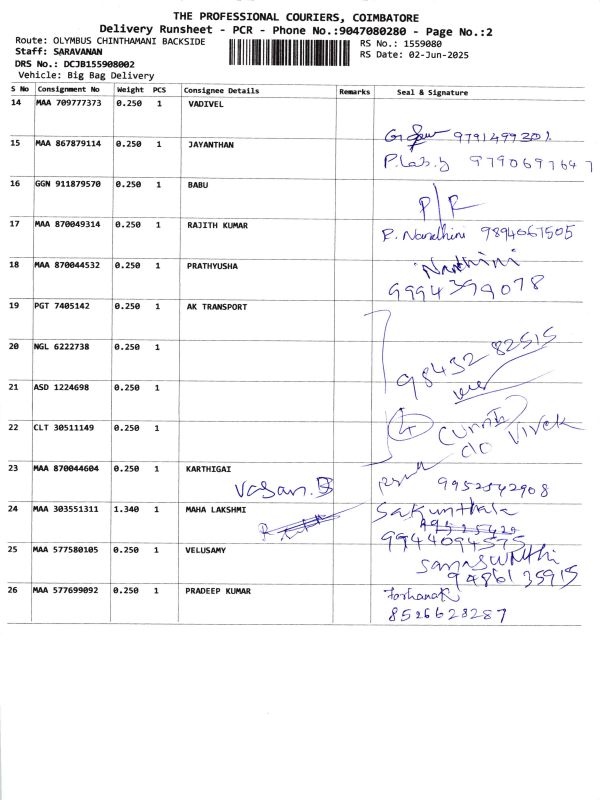 THE PROFESSIONAL COURIERS, COIMBATORE
Delivery Runsheet - PCR - Phone No.:9047080280 - Page No.:2
Route: OLYMBUS CHINTHAMANI BACKSIDE RS No.: 1559080
Staff: SARAVANAN RS Date: 02-Jun-2025
DRS No.: DCJB155908002
Vehicle: Big Bag Delivery
S No Consignment No Weight PCS Consignee Details Remarks Seal & Signature
14 MAA 709777373 0.250 1 VADIVEL
9791499301
15 MAA 867879114 0.250 1 JAYANTHAN
9790697647
16 GGN 911879570 0.250 1 BABU
P/R
17 MAA 870049314 0.250 1 RAJITH KUMAR
R. Nandhini 9894061505
18 MAA 870044532 0.250 1 PRATHYUSHA
Nandhini
9994399078
19 PGT 7405142 0.250 1 AK TRANSPORT
20 NGL 6222738 0.250 1
98432 82515
21 ASD 1224698 0.250 1
22 CLT 30511149 0.250 1
4
c/o Vivek
23 MAA 870044604 0.250 1 KARTHIGAI
Vasan.B 9952542908
24 MAA 303551311 1.340 1 MAHA LAKSHMI
Sakunthala
9944094575
25 MAA 577580105 0.250 1 VELUSAMY
Saraswathi
9486135915
26 MAA 577699092 0.250 1 PRADEEP KUMAR
FarhanaR
8526623287